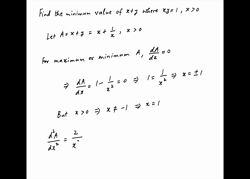 Find the minimum value of x+y where xy=1, x>0
Let A = x+y = x + 1/x, x>0
For maximum or minimum A, dA/dx = 0
⇒ dA/dx = 1 - 1/x² = 0 ⇒ 1 = 1/x² ⇒ x = ±1
But x>0 ⇒ x ≠ -1 ⇒ x = 1
d²A/dx² = 2/x